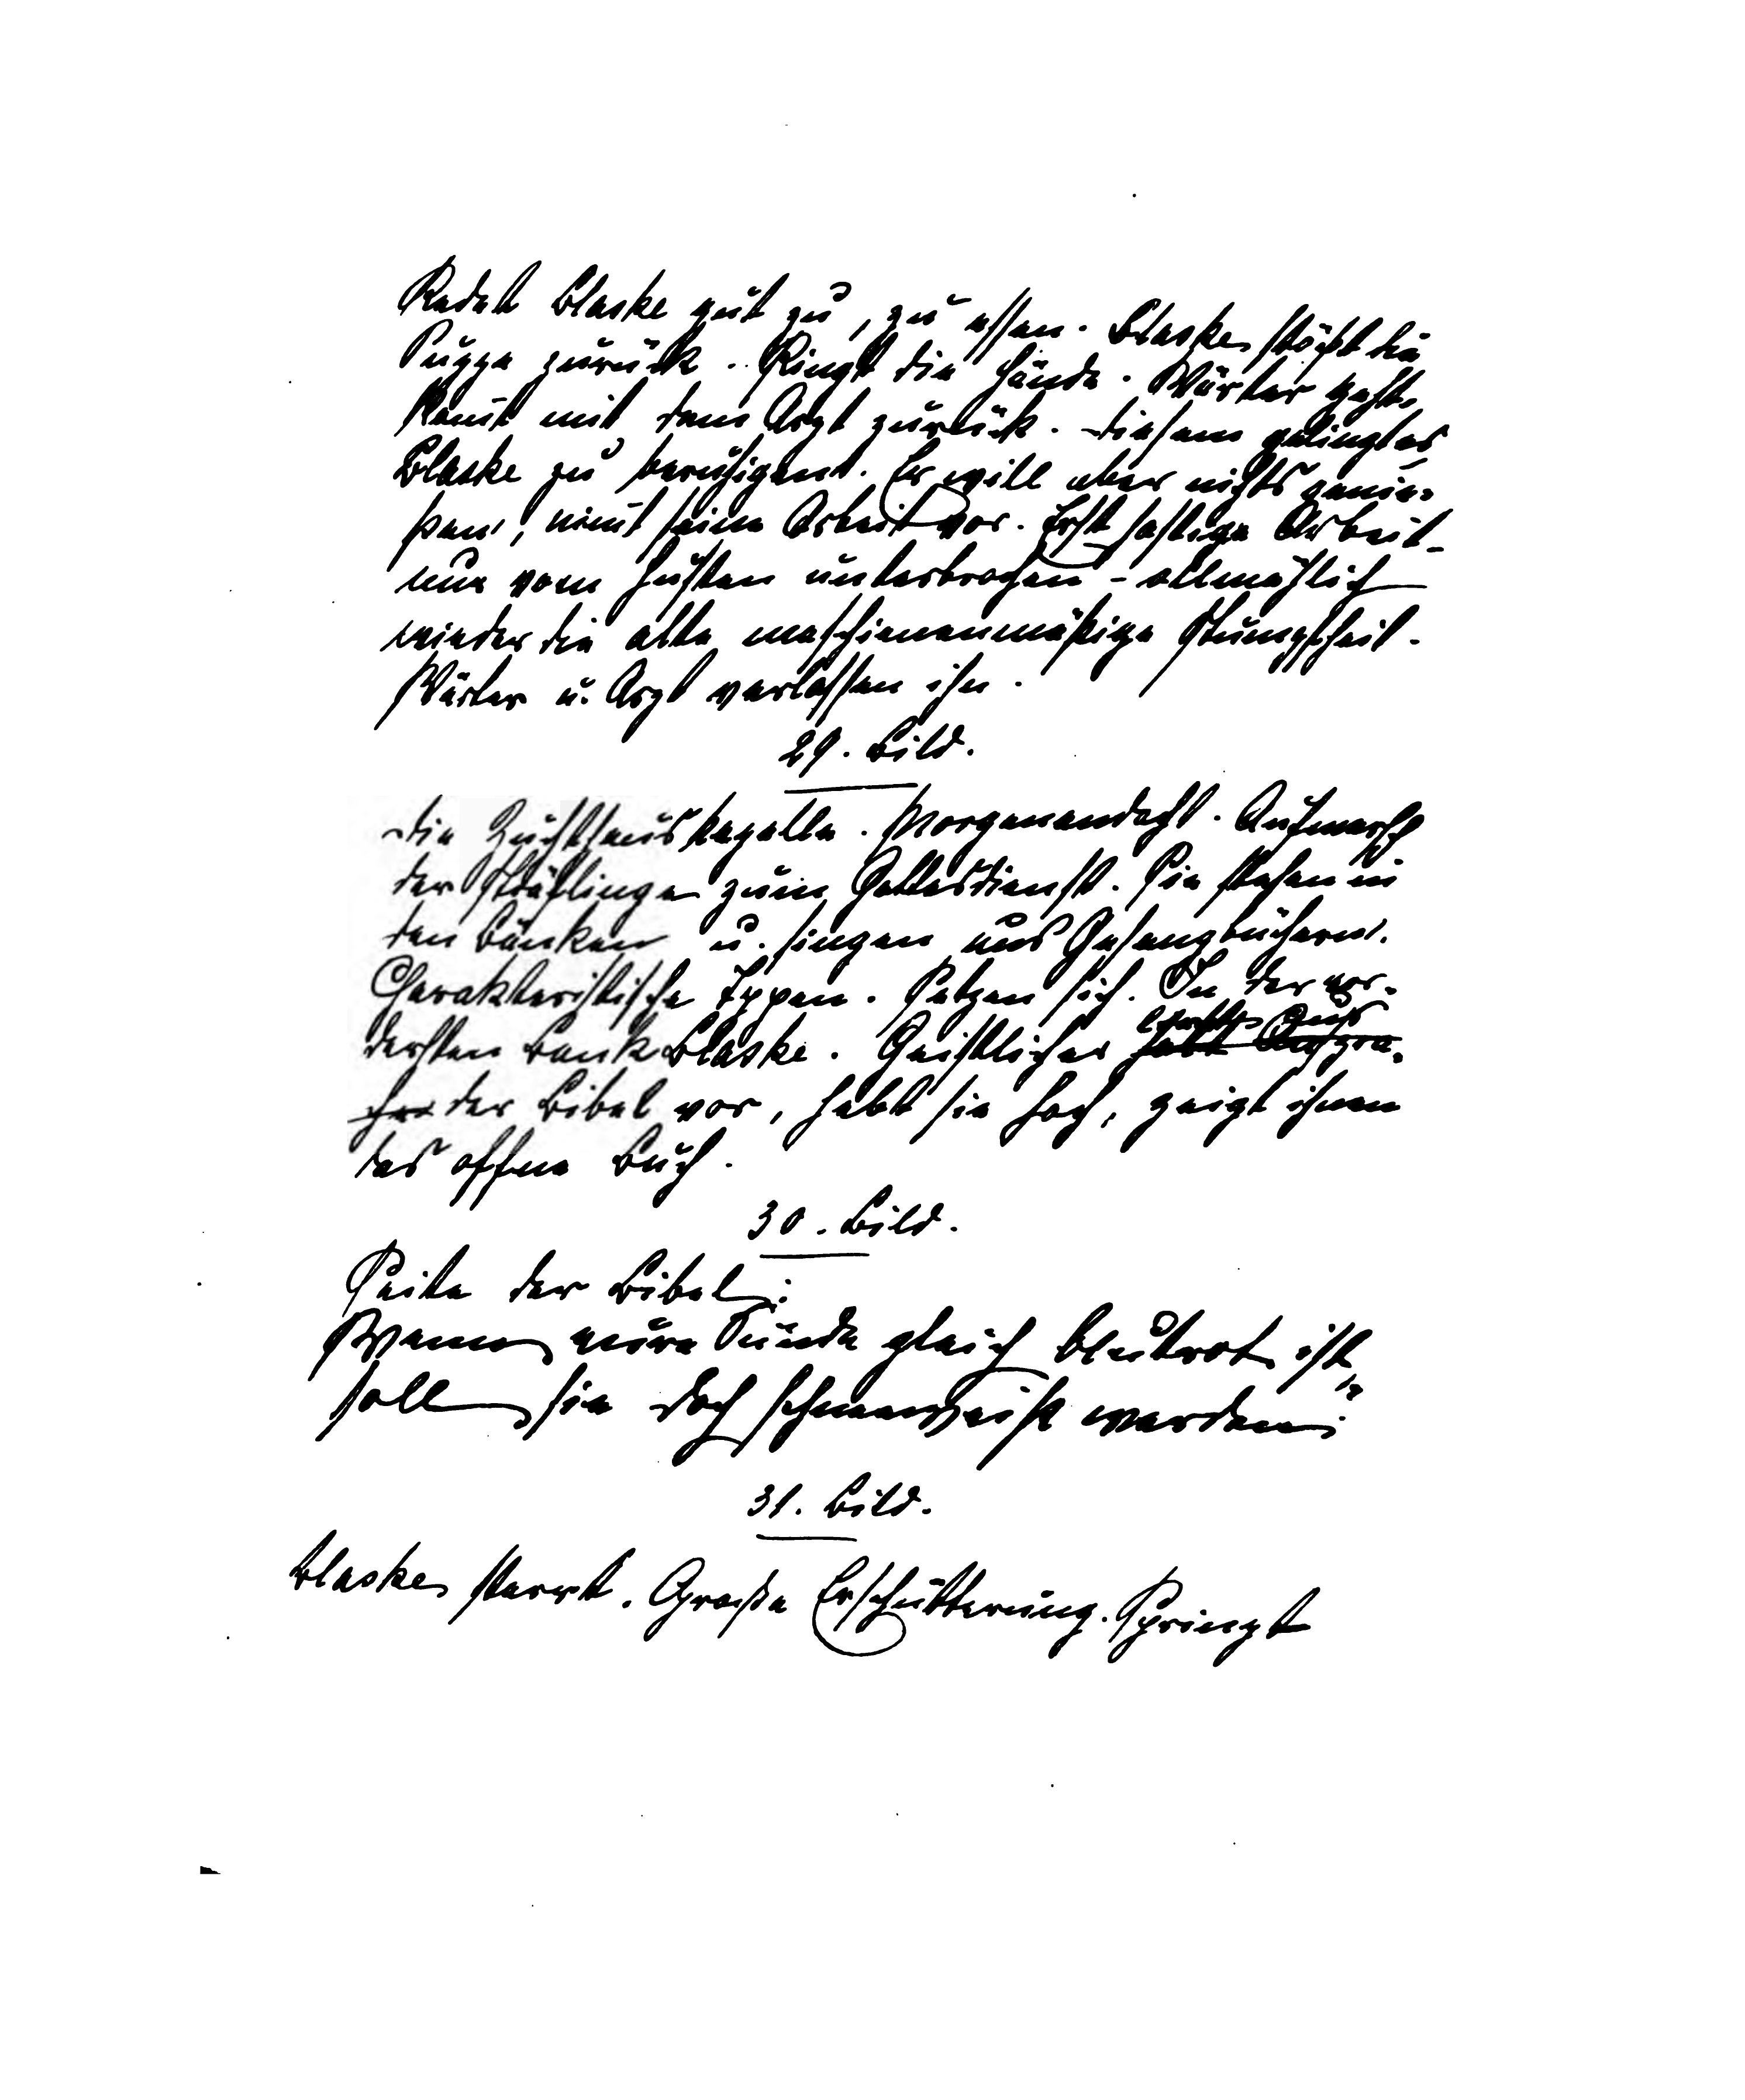 Redet Blaske gut zu, zu essen. Blaske stößt die
Suppe zurück. Ringt die Hände. Wärter geht,
komt mit dem Arzt zurück. Diesem gelingt es
Blaske zu beruhigen. Er will aber nichts genie-
ßen, nimt seine Arbeit vor. Erst hastige Arbeit -
nur vom Husten unterbrochen - allmählich
wieder die alte maschienenmäßige Stumpfheit.
Wärter u. Arzt verlassen ihn.
29. Bild.
Die Zuchthauskapelle. Morgenandacht. Aufmarsch
der Sträflinge zum Gottesdienst. Sie stehen in
den Bänken u. singen aus Gesangbüchern.
Charakteristische Typen. Setzen sich. In der vor-
dersten Bank Blaske. Geistlicher hebt Anspra-
aus
che der Bibel vor, hebt sie hoch, zeigt ihnen
das offne Buch.
30. Bild.
Seite der Bibel:
Wenn eure Sünde gleich blutrot ist,
soll sie doch schneeweiß werden.
31. Bild.
Blaske starrt. Große Erschütterung. Springt